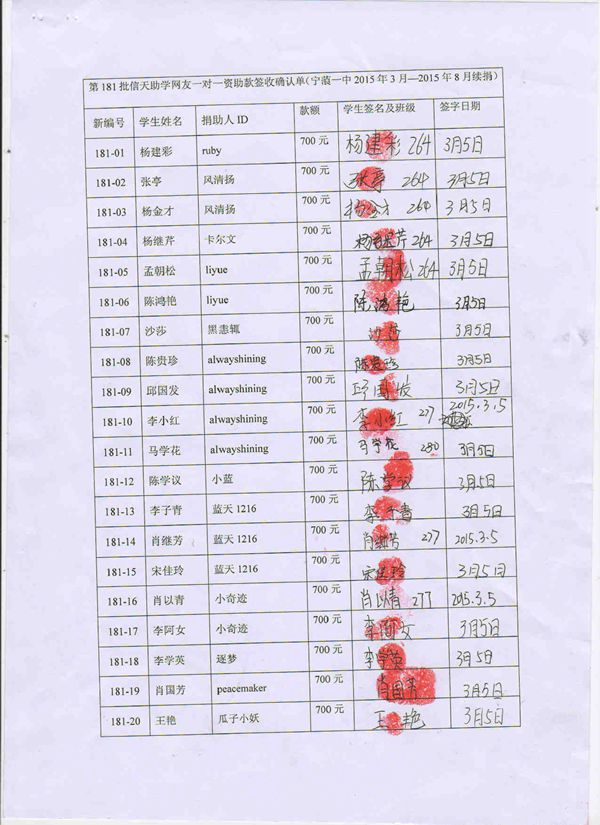 第181批信天助学网友一对一资助款签收确认单(宁蒗一中2015年3月—2015年8月续捐)
新编号 学生姓名 捐助人ID 款额 学生签名及班级 签字日期
181-01 杨建彩 ruby 700元 杨建彩 264 3月5日
181-02 张亭 风清扬 700元 张亭 264 3月5日
181-03 杨金才 风清扬 700元 杨金才 264 3月5日
181-04 杨继芹 卡尔文 700元 杨继芹 264 3月5日
181-05 孟朝松 liyue 700元 孟朝松 264 3月5日
181-06 陈鸿艳 liyue 700元 陈鸿艳 3月5日
181-07 沙莎 黑恚辄 700元 沙莎 3月5日
181-08 陈贵珍 alwayshining 700元 陈贵珍 3月5日
181-09 邱国发 alwayshining 700元 邱国发 3月5日
181-10 李小红 alwayshining 700元 李小红 277 2015.3.5
181-11 马学花 alwayshining 700元 马学花 280 3月5日
181-12 陈学议 小蓝 700元 陈学议 3月5日
181-13 李子青 蓝天1216 700元 李子青 3月5日
181-14 肖继芳 蓝天1216 700元 肖继芳 277 2015.3.5
181-15 宋佳玲 蓝天1216 700元 宋佳玲 3月5日
181-16 肖以青 小奇迹 700元 肖以青 277 2015.3.5
181-17 李阿女 小奇迹 700元 李阿女 3月5日
181-18 李学英 逐梦 700元 李学英 3月5日
181-19 肖国芳 peacemaker 700元 肖国芳 3月5日
181-20 王艳 瓜子小妖 700元 王艳 3月5日